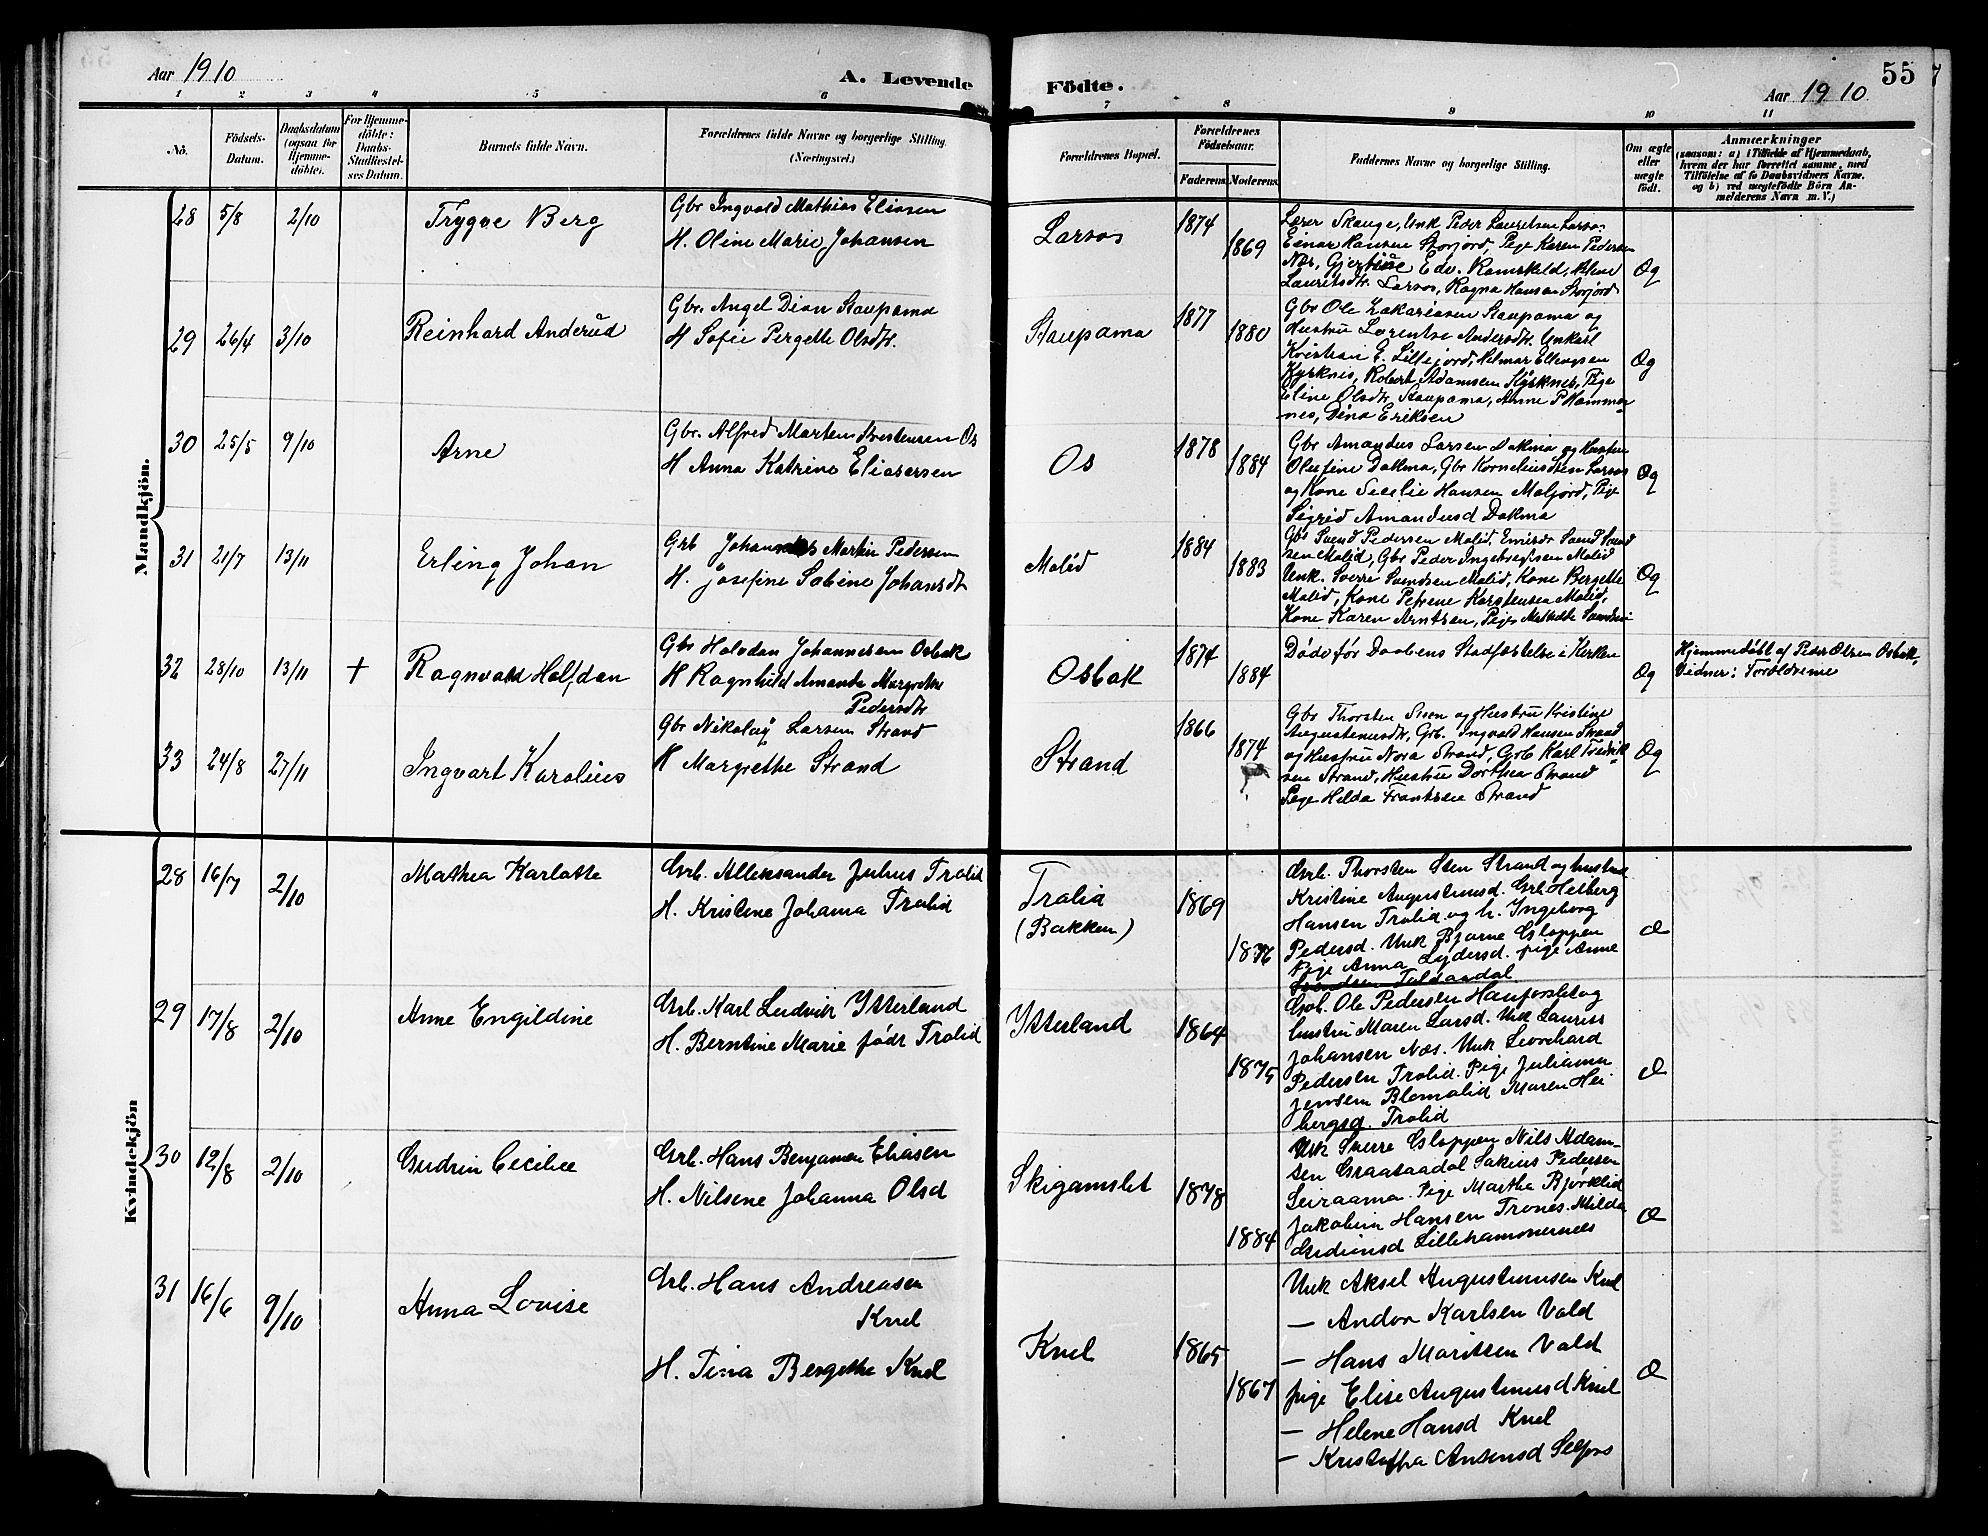 Aar 1910
A. Levende Födte.
Aar 1910
55
1 2 3 4 5 6 7 8 9 10 11
No.
Födsels-Datum.
Daabsdatum (ogsaa for Hjemmedöbte).
For Hjemmedöbte: Daabs-Stadfæstelses Datum.
Barnets fulde Navn.
Forældrenes fulde Navne og borgerlige Stilling. (Næringsvei.)
Forældrenes Bopæl.
Forældrenes Födselsaar.
Faderens Moderens
Faddernes Navne og borgerlige Stilling.
Om ægte eller uægte födt.
Anmærkninger
(saasom: a) i Tilfælde af Hjemmedaab, hvem der har forrettet samme, med Tilföielse af to Daabsvidners Navne, og b) ved uægtefödte Börn Anmelderens Navn m. V.)
Mandkjön.
28 5/8 2/10 Trygve Berg
Gbr Ingvald Mathias Eliasen
H. Oline Marie Johansen
Larsos 1874 1869
Lærer Skauge, Unk Peder Lauritsen Larsos
Einar Hansen Storjord, Pige Karen Pedersen
Næs, Gjertine Edv. Ramskeld,
Lauritsdtr. Larsos, Ragna Hansen Storjord
Æg
29 26/4 3/10 Reinhard Anderud
Gbr. Angel Dian Staupama
H Sofie Pergette Olsdtr.
Staupama 1877 1880
Gbr Ole Zakariasen Staupama og
Hustru Lorentse Andersdtr. Unkarl
Kristian E. Lillejord, Helmar Ellingsen
Kyrknes, Robert Adamsen Kyrknes, Pige
Eline Olsdtr Staupama, Anne P Hammer-
nes, Dina Eriksen
Æg
30 25/5 9/10 Arne
Gbr. Alfred Martin Kristensen Os
H Anna Katrine Eliasersen
Os 1878 1884
Gbr Amandus Larsen Dokma og Hustru
Olufine Dokma, Gbr Kornelius Sten Larsos
og Kone Secelie Hansen Moljord, Pige
Sigrid Amandusd Dokma
Æg
31 21/7 13/11 Erling Johan
Grb Johannes Martin Pedersen
H. Josefine Sabine Johansdtr
Molid 1884 1883
Gbr Svend Pedersen Molid,
sen Molid, Gbr Peder Ingebrigtsen Molid
Unk. Sverre Svendsen Molid, Kone Bergette
Molid, Kone Petrine Karstensen Molid,
Kone Karen Arntsen, Pige Mathilde Svendsen
Æg
32 28/10 13/11 + Ragnvald Halfdan
Gbr Halvdan Johannesen Osbak
H Ragnhild Amanda Margrethe
Pedersdtr
Osbak 1874 1884
Døde før Daabens Stadfæstelse i Kirken
Æg
Hjemmedøbt af Peder Olsen Osbak,
Vidner: Forældrene
33 24/8 27/11 Ingvart Karolius
Gbr Nikolaij Larsen Strand
H Margrethe Strand
Strand 1866 1874 ?
Gbr Thorsten Steen og Hustru Kristine
Augustinusdtr, Grb. Ingvald Hansen Strand
og Hustru Nora Strand, Grb Karl Fredrik-
sen Strand, Hustru Dorthea Strand
Pige Hilda Frantsen Strand
Æg
Kvindekjön
28 16/7 2/10 Mathea Karlotte
Grb. Alleksander Julius Trolid
H. Kristine Johanna Trolid
Trolia
(Bakken) 1869 1876
Grb. Thorsten Sten Strand og hustru
Kristine Augustinusd. Grb. Heiberg
Hansen Trolid og h. Ingeborg
Pedersd. Unk Bjarne Gloppen
Pige Anna Lydersd. pige Anne
Svendsen Toldaadal
Æ
29 17/8 2/10 Anne Engildine
Grb. Karl Ludvik Ytterland
H. Berntine Marie født Trolid
Ytterland 1864 1875
Grb. Ole Pedersen Hanforslet og
hustru Maren Larsd. Unk Laurits
Johansen Næs. Unk Leonhard
Pedersen Trolid. Pige Julianna
Jensen Blomolid Maren Hei
bergsd. Trolid
Æ
30 12/8 2/10 Gudrun Cecilie
Grb. Hans Benjamin Eliasen
H. Nilsene Johanna Olsd
Skigamslet 1878 1884
Unk Sverre Gloppen Nils Adam-
sen Graataadal Sakius Pedersen
Leiraama. Pige Martha Bjørklid
Jakobine Hansen Trones. Milda
Gideonsd Lillehammernes
Æ
31 16/6 9/10 Anna Lovise
Grb. Hans Andreasen
Knel
H. Tina Bergethe Knel
Knel 1865 1867
Unk Aksel Augustinusen Knel
— Andor Karlsen Vold
— Hans Moritsen Vold
pige Elise Augustinusd Knel
— Helene Hansd Knel
— Kristoffa Antonsd Selfors
Æ